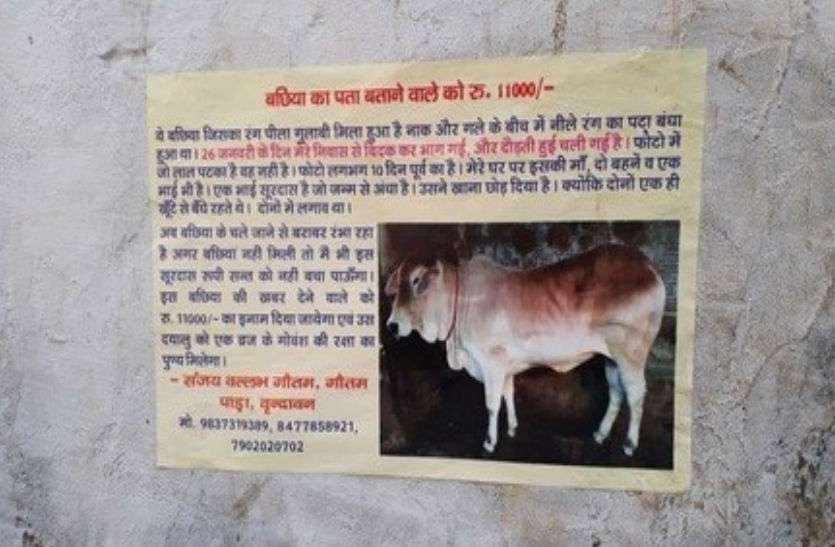 बछिया का पता बताने वाले को रु. 11000/-
ये बछिया जिसका रंग पीला गुलाबी मिला हुआ है नाक और गले के बीच में नीले रंग का पटा बंधा
हुआ था। 26 जनवरी के दिन मेरे निवास से बिदक कर भाग गई, और दौड़ती हुई चली गई है। फोटो में
जो लाल पटका है वह नहीं है। फोटो लगभग 10 दिन पूर्व का है। मेरे घर पर इसकी माँ, दो बहनें व एक
भाई भी है। एक भाई सूरदास है जो जन्म से अंधा है। उसने खाना छोड़ दिया है। क्योंकि दोनों एक ही
खूँटे से बँधे रहते थे। दोनों में लगाव था।
अब बछिया के चले जाने से बराबर रंभा रहा
है अगर बछिया नहीं मिली तो मैं भी इस
सूरदास रूपी सन्त को नहीं बचा पाऊँगा।
इस बछिया की खबर देने वाले को
रु. 11000/- का इनाम दिया जायेगा एवं उस
दयालु को एक ब्रज के गोवंश की रक्षा का
पुण्य मिलेगा।
- संजय वल्लभ गौतम, गौतम
पाड़ा, वृन्दावन
मो. 9837319389, 8477858921,
7902020702